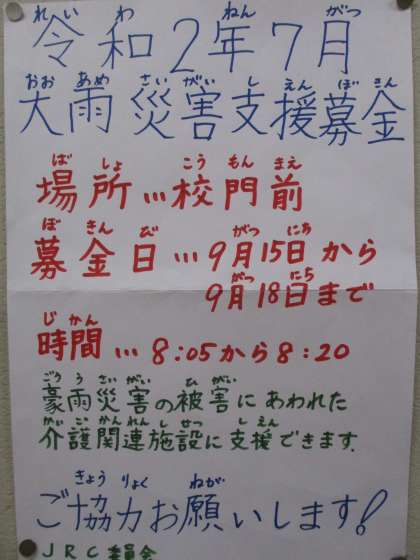 れいわ ねん がつ
令和2年7月
おおあめ さいがい しえん ぼきん
大雨 災害支援募金
ばしょ こうもんまえ
場所…校門前
ぼきんび がつ にち
募金日…9月15日から
がつ にち
9月18日まで
じかん
時間…8:05から8:20
ごううさいがい ひがい
豪雨災害の被害にあわれた
かいごかんれんしせつ しえん
介護関連施設に支援できます.
きょうりょく ねが
ご協力お願いします!
JRC委員会